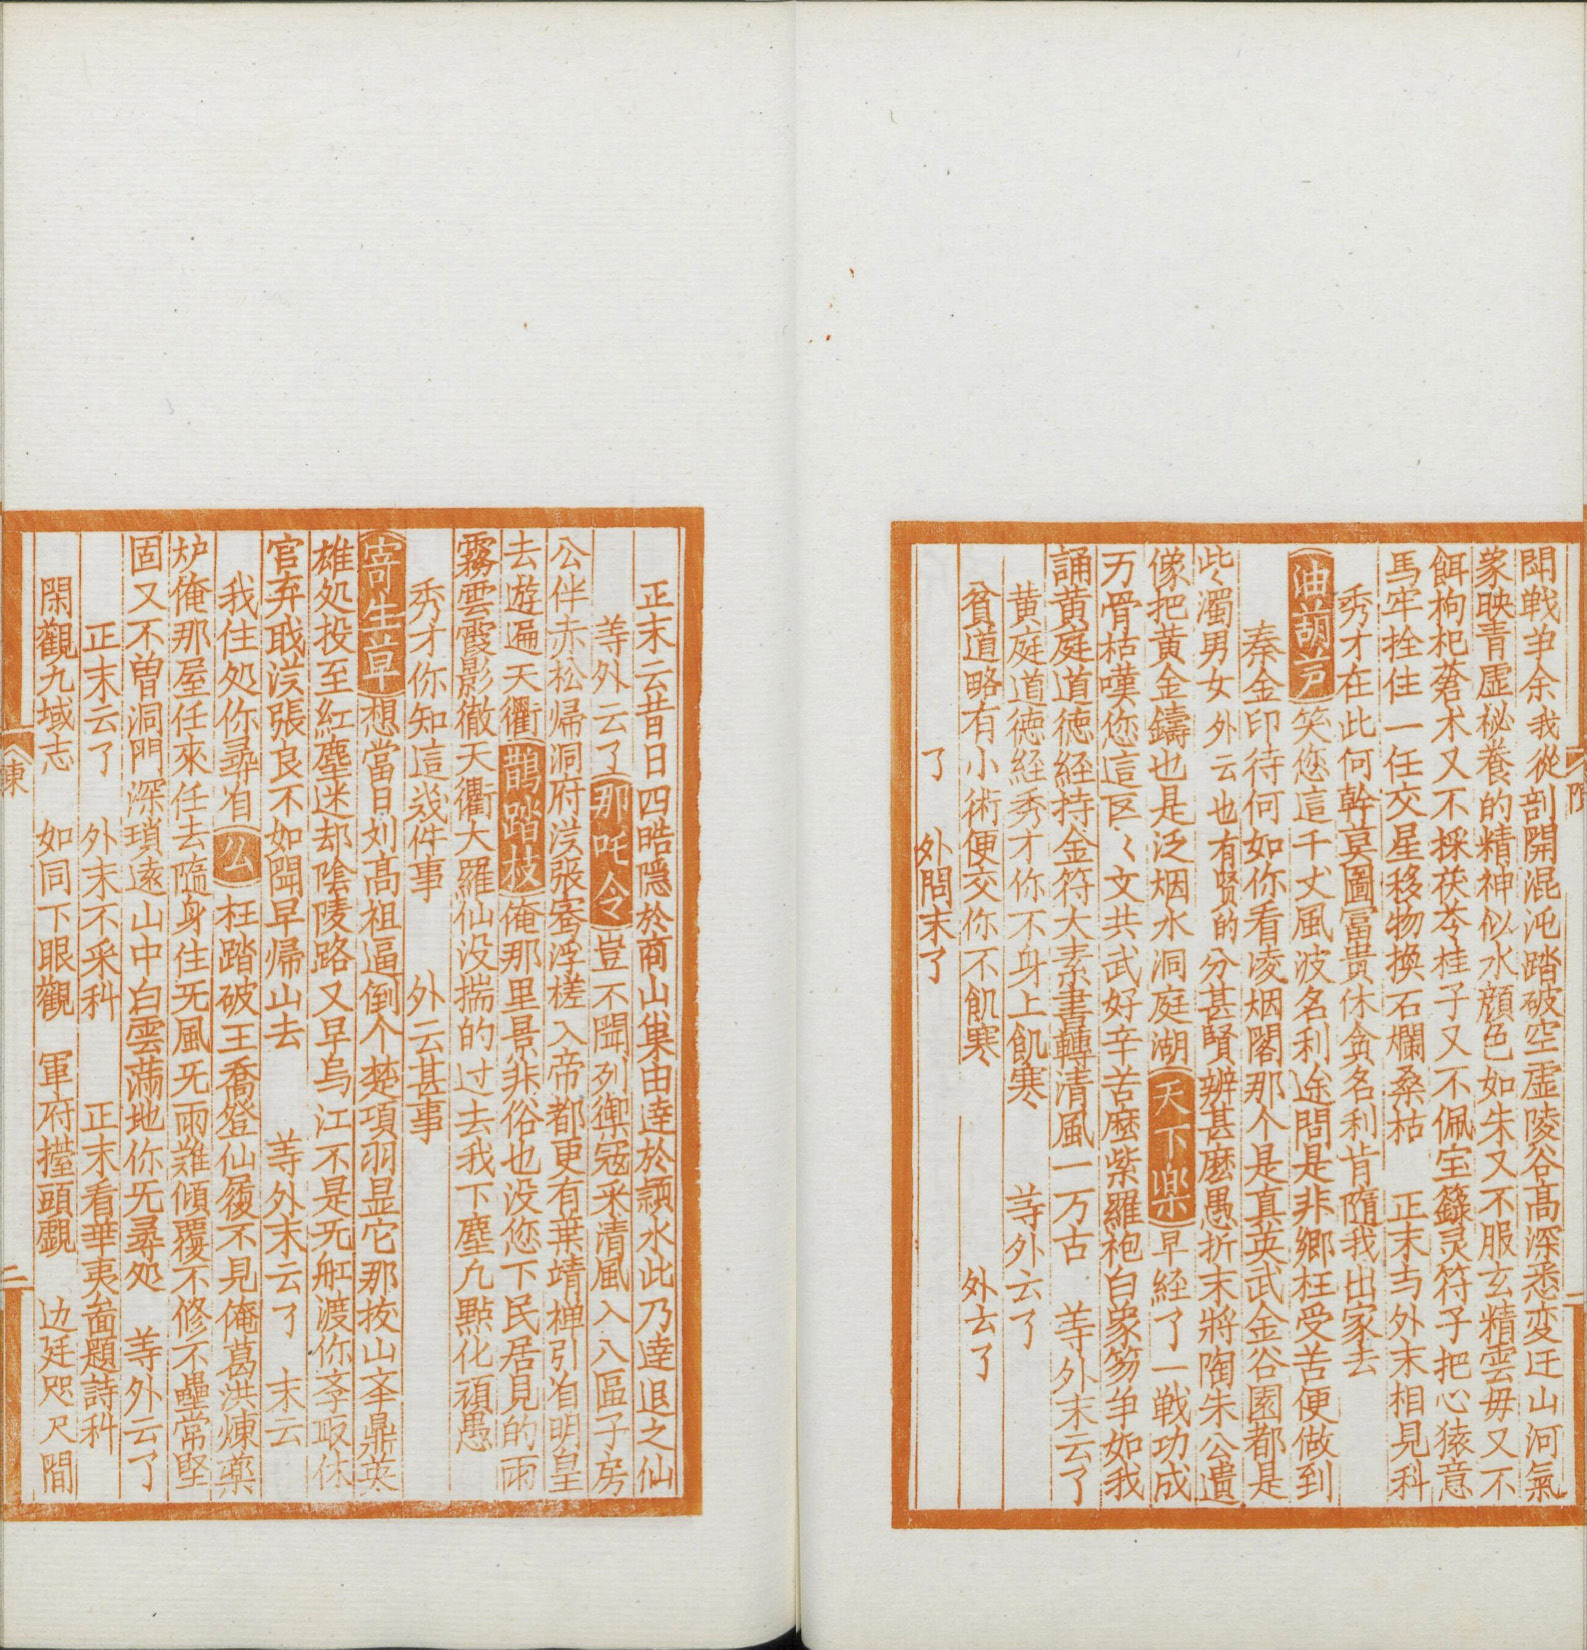 閗戦争余我從剖開混沌踏破空虛陵谷髙深悉変迁山河氣
蒙映青虛秘養的精神似水顔色如朱又不服玄精雲毋又不
餌枸杞蒼术又不採茯苓桂子又不佩宝籙灵符子把心猿意
馬牢拴住一任交星移物換石爛桑枯 正末与外末相見科
秀才在此何幹莫圖富貴休貪名利肯隨我出家去
油葫芦 笑您這千丈風波名利途問是非郷枉受苦便做到
秦金印待何如你看凌烟閣那个是真英武金谷園都是
些〻濁男女 外云也有贤的 分甚賢辨甚麽愚折末將陶朱公遺
像把黄金鑄也是泛烟水洞庭湖 天下楽 早経了一戦功成
万骨枯嘆您這区〻文共武好辛苦麽紫羅袍白象笏争如我
誦黄庭道徳経持金符大素書轉清風一万古 等外末云了
黄庭道徳経秀才你不身上飢寒 等外云了
貧道略有小術便交你不飢寒 外云了
了 外問末了
正末云昔日四晧隱於商山巣由逹於潁水此乃逹退之仙
等外云了 那吒令 豈不聞列禦寇乘清風入八區子房
公伴赤松帰洞府汉張騫浮槎入帝都更有葉靖禅引着明皇
去遊遍天衢 鵲踏枝 俺那里景非俗也没您下民居見的雨
霧雲霞影徹天衢大羅仙没揣的过去我下塵凢㸃化頑愚
秀才你知這㡬件事 外云甚事
寄生草 想當日刘髙祖逼倒个楚項羽显它那拔山举鼎英
雄処投至紅塵迷却陰陵路又早烏江不是旡舡渡你学取休
官弃职汉張良不如聞早帰山去 等外末云了 末云
我住処你尋着 幺 枉踏破王喬登仙履不見俺葛洪煉藥
炉俺那屋任來任去隨身住旡風旡雨難傾覆不修不壘常堅
固又不曽洞門深瑣遠山中白雲滿地你旡尋処 等外云了
正末云了 外末不采科 正末看華夷啚題詩科
閑觀九域志 如同下眼觀 軍府擡頭覷 边廷咫尺間